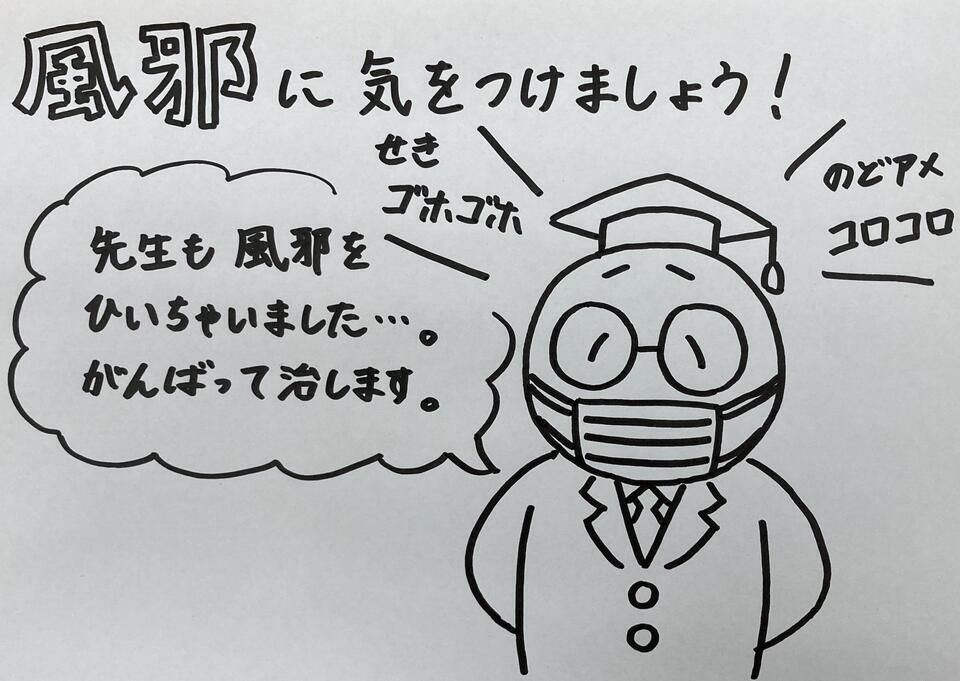 風邪に気をつけましょう!
せき
ゴホゴホ
のどアメ
コロコロ
先生も風邪を
ひいちゃいました…。
がんばって治します。